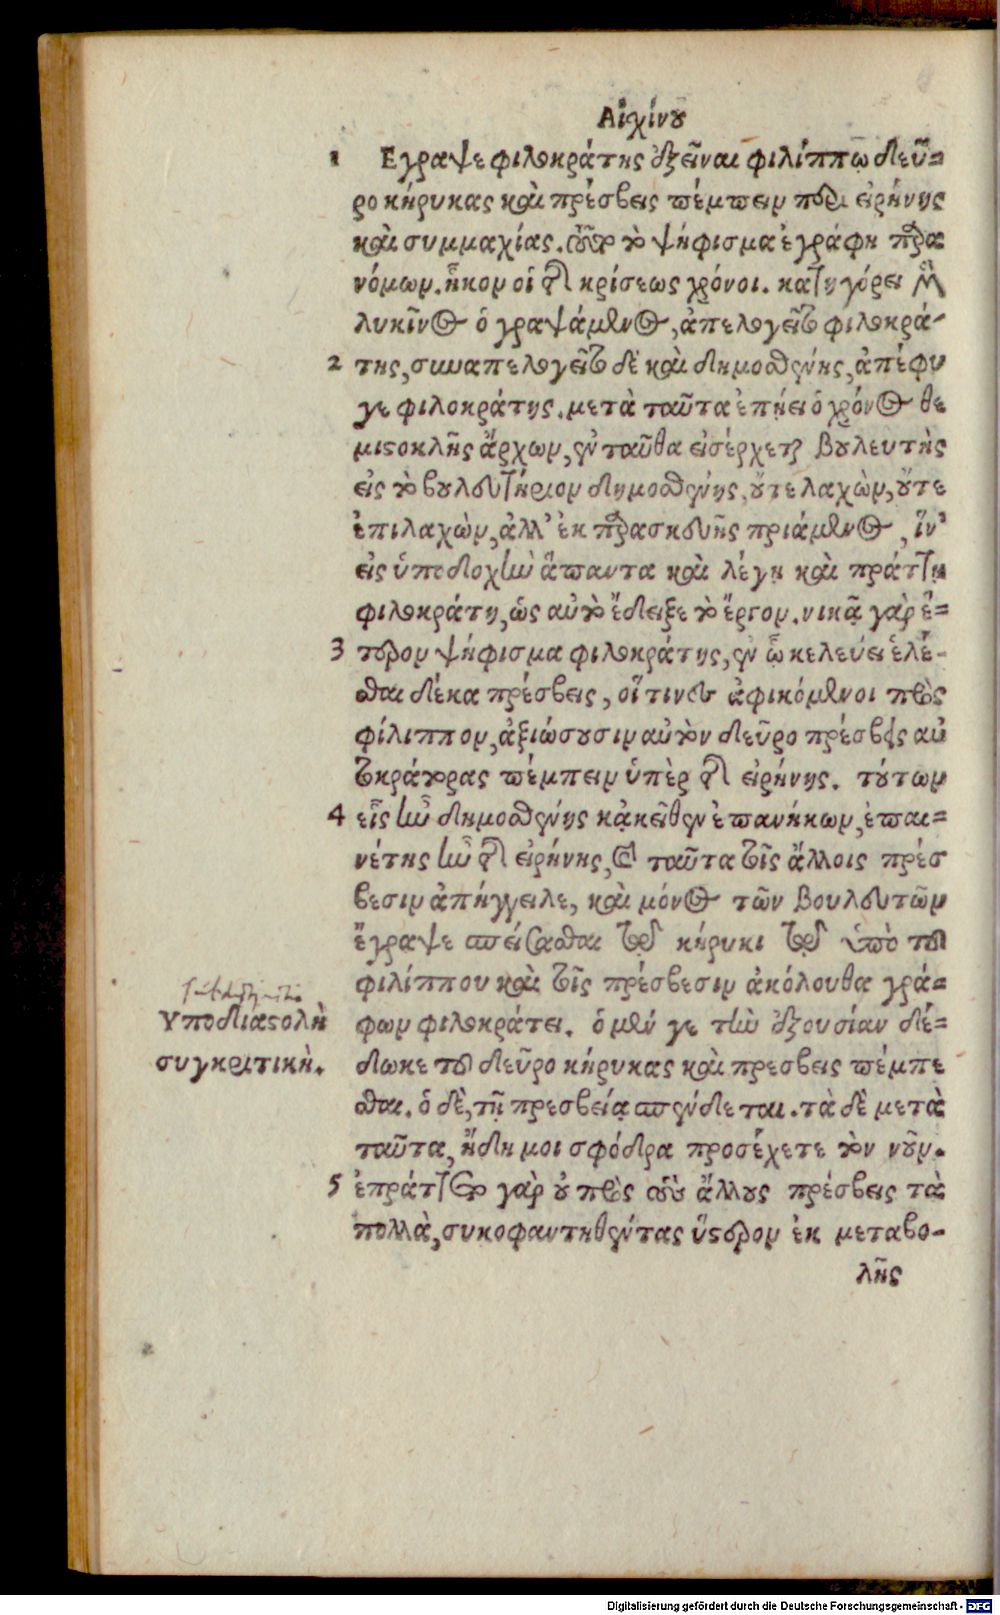 Αἰχίνου
1 Εγραψε φιλοκράτης ἐξεῖναι φιλίππῳ δεῦ=
ρο κήρυκας καὶ πρέσβεις πέμπειν περὶ εἰρήνης
καὶ συμμαχίας. τοῦτο τὸ ψήφισμα ἐγράφη παρα
νόμων. ἧκον οἱ τῆς κρίσεως χρόνοι. κατηγόρει μὲν
λυκῖνος ὁ γραψάμενος, ἀπελογεῖτο φιλοκρά-
2 της, συναπελογεῖτο δὲ καὶ δημοσθένης, ἀπέφυ
γε φιλοκράτης. μετὰ ταῦτα ἐπῄει ὁ χρόνος θε
μιστοκλῆς ἄρχων, ἐνταῦθα εἰσέρχεται βουλευτὴς
εἰς τὸ βουλευτήριον δημοσθένης, οὔτε λαχὼν, οὔτε
ἐπιλαχὼν, ἀλλ' ἐκ παρασκευῆς πριάμενος, ἵν'
εἰς ὑποδοχὴν ἅπαντα καὶ λέγῃ καὶ πράττῃ
φιλοκράτῃ, ὡς αὐτὸ ἔδειξε τὸ ἔργον. νικᾷ γὰρ ἕ=
3 τερον ψήφισμα φιλοκράτης, ἐν ᾧ κελεύει ἑλέ-
σθαι δέκα πρέσβεις, οἵτινες ἀφικόμενοι πρὸς
φίλιππον, ἀξιώσουσιν αὐτὸν δεῦρο πρέσβεις αὐ
τοκράτορας πέμπειν ὑπὲρ τῆς εἰρήνης. τούτων
4 εἷς ἦν δημοσθένης κἀκεῖθεν ἐπανήκων, ἐπαι=
νέτης ἦν τῆς εἰρήνης, καὶ ταῦτα τοῖς ἄλλοις πρέσ
βεσιν ἀπήγγειλε, καὶ μόνος τῶν βουλευτῶν
ἔγραψε σπείσασθαι τῷ κήρυκι τῷ ἀπὸ τοῦ
φιλίππου καὶ τοῖς πρέσβεσιν ἀκόλουθα γρά=
φων φιλοκράτει. ὁ μέν γε τὴν ἐξουσίαν δέ=
δωκε τοῦ δεῦρο κήρυκας καὶ πρεσβεις πέμπε
σθαι. ὁ δὲ, τῇ πρεσβείᾳ σπένδεται. τὰ δὲ μετὰ
ταῦτα, ἤδη μοι σφόδρα προσέχετε τὸν νοῦν.
5 ἐπράττετο γὰρ οὐ πρὸς τοὺς ἄλλους πρέσβεις τὰ
πολλὰ, συκοφαντηθέντας ὕστερον ἐκ μεταβο-
λῆς
Υποδιαστολὴ
συγκριτικὴ.
Digitalisierung gefördert durch die Deutsche Forschungsgemeinschaft - DFG